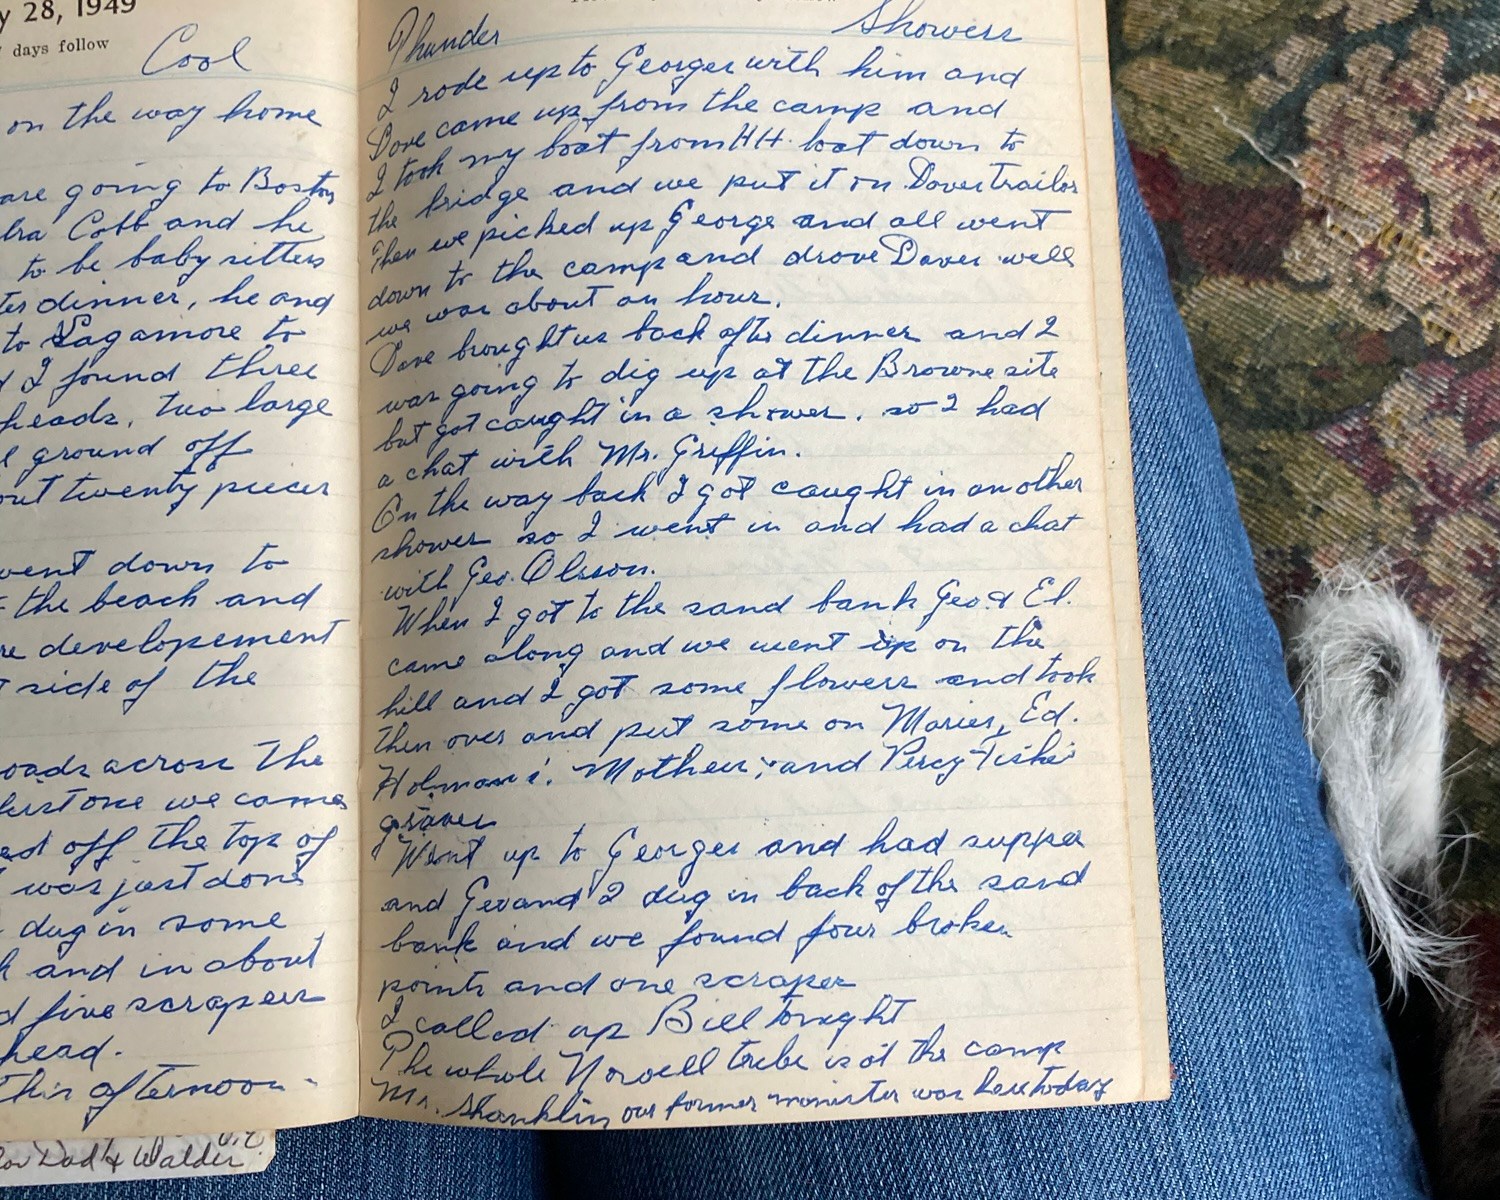 y 28, 1949
days follow
Cool
on the way home
are going to Boston
lra Cobb and he
to be baby sitters
ter dinner, he and
to Sagamore to
d I found three
heads, two large
l ground off
out twenty pieces
went down to
the beach and
re developement
t side of the
oads across the
first one we came
ed off the top of
was just done
dug in some
k and in about
d five scrapers
head.
This afternoon
or Dad & Walder
Thunder Showers
I rode up to Georges with him and
Dave came up from the camp and
I took my boat from HH. boat down to
the bridge and we put it on Daves Trailor
Then we picked up George and all went
down to the camp and drove Daves well
we was about an hour.
Dave brought us back after dinner and I
was going to dig up at the Browne site
but got caught in a shower. so I had
a chat with Mr. Griffin.
On the way back I got caught in another
shower so I went in and had a chat
with Geo. Olsson.
When I got to the sand bank Geo. & El.
came along and we went up on the
hill and I got some flowers and took
then over and put some on Maries, Ed.
Holmans'. Mothers, and Percy Fishe
graves
Went up to Georges and had supper
and Geo and I dug in back of the sand
bank and we found four broken
points and one scraper
I called up Bill tonight
The whole Norvell tribe is at the camp
Mr. Shanklin our former minister was here today